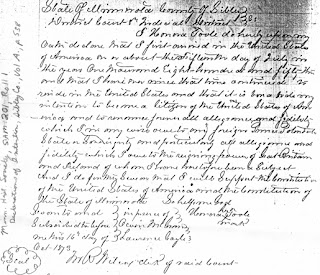 State of Minnesota County of Sibley
District Court 8th Judicial District
I Honora Toole do hereby upon my
oath declare that I first arrived in the United States
of America on or about the fifteenth day of July in
the year One thousand Eight hundred and fifty
that I have ever since that time continued to
reside in the United States and that it is bona fide my
intention to become a Citizen of the United States of Ame
rica and to renounce forever all allegiance and fidelity
which I in any wise owe to any foreign Prince Potentate
State or Sovereignty and particularly all allegiance and
fidelity which I owe to the reigning power of Great Britain
and Ireland of whom I have heretofore been a Subject
And I do further Swear that I will Support the Constitution
of the United States of America and the Constitution of
the State of Minnesota So help me God
Sworn to and in presence of Honora Toole
Subscribed before mark
me this 16th day of
Oct 1893
clerk of said Court
Seal
Minn. Hist. Society, SAM-201, Roll 1
Declaration of Intention, Sibley, Vol A, p 538